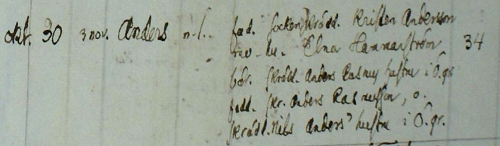 Okt. 30 3 nov. Anders fad. sockenskrädd. Kristen Andersson
hu. Elna Hammarström 34
skrädd. Anders Rasmus hustru i Ö.gr.
fadd. skr. Anders Rasmussen, o.
skrädd. Nils Anders' hustru i Ö. gr.